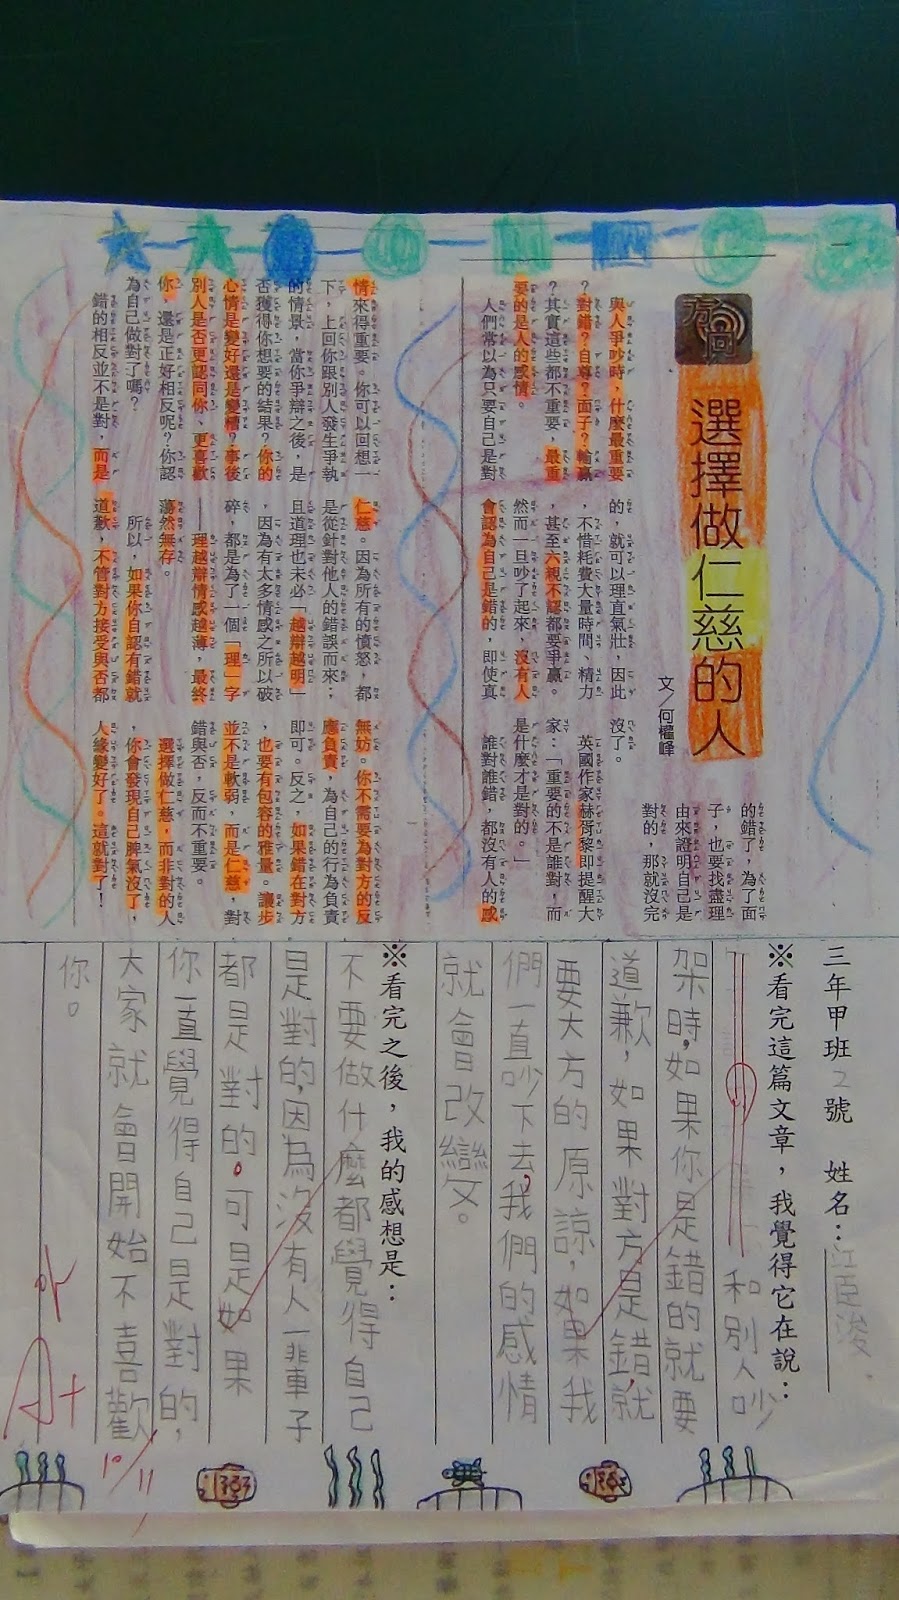 方向
選擇做仁慈的人
文／何權峰
與人爭吵時，什麼最重要
？對錯？自尊？面子？輸贏
？其實這些都不重要，最重
要的是人的感情。
人們常以為只要自己是對
的，就可以理直氣壯，因此
，不惜耗費大量時間、精力
，甚至六親不認都要爭贏。
然而一旦吵了起來，沒有人
會認為自己是錯的，即使真
的錯了，為了面
子，也要找盡理
由來證明自己是
對的，那就沒完
沒了。
英國作家赫胥黎即提醒大
家：「重要的不是誰對，而
是什麼才是對的。」
誰對誰錯，都沒有人的感
情來得重要。你可以回想一
下，上回你跟別人發生爭執
的情景，當你爭辯之後，是
否獲得你想要的結果？你的
心情是變好還是變糟？事後
別人是否更認同你、更喜歡
你，還是正好相反呢？你認
為自己做對了嗎？
錯的相反並不是對，而是
仁慈。因為所有的憤怒，都
是從針對他人的錯誤而來；
且道理也未必「越辯越明」
，因為有太多情感之所以破
碎，都是為了一個「理」字
——理越辯情感越薄，最終
蕩然無存。
所以，如果你自認有錯就
道歉，不管對方接受與否都
無妨。你不需要為對方的反
應負責，為自己的行為負責
即可。反之，如果錯在對方
，也要有包容的雅量。讓步
並不是軟弱，而是仁慈，對
錯與否，反而不重要。
選擇做仁慈，而非對的人
，你會發現自己脾氣沒了，
人緣變好了。這就對了！
三年甲班2號 姓名：江臣浚
※看完這篇文章，我覺得它在說：
和別人吵
架時，如果你是錯的就要
道歉，如果對方是錯，就
要大方的原諒，如果我
們一直吵下去，我們的感情
就會改變。
※看完之後，我的感想是：
不要做什麼都覺得自己
是對的，因為沒有人一輩子
都是對的。可是如果
你一直覺得自己是對的，
大家就會開始不喜歡
你。
A+
10/11